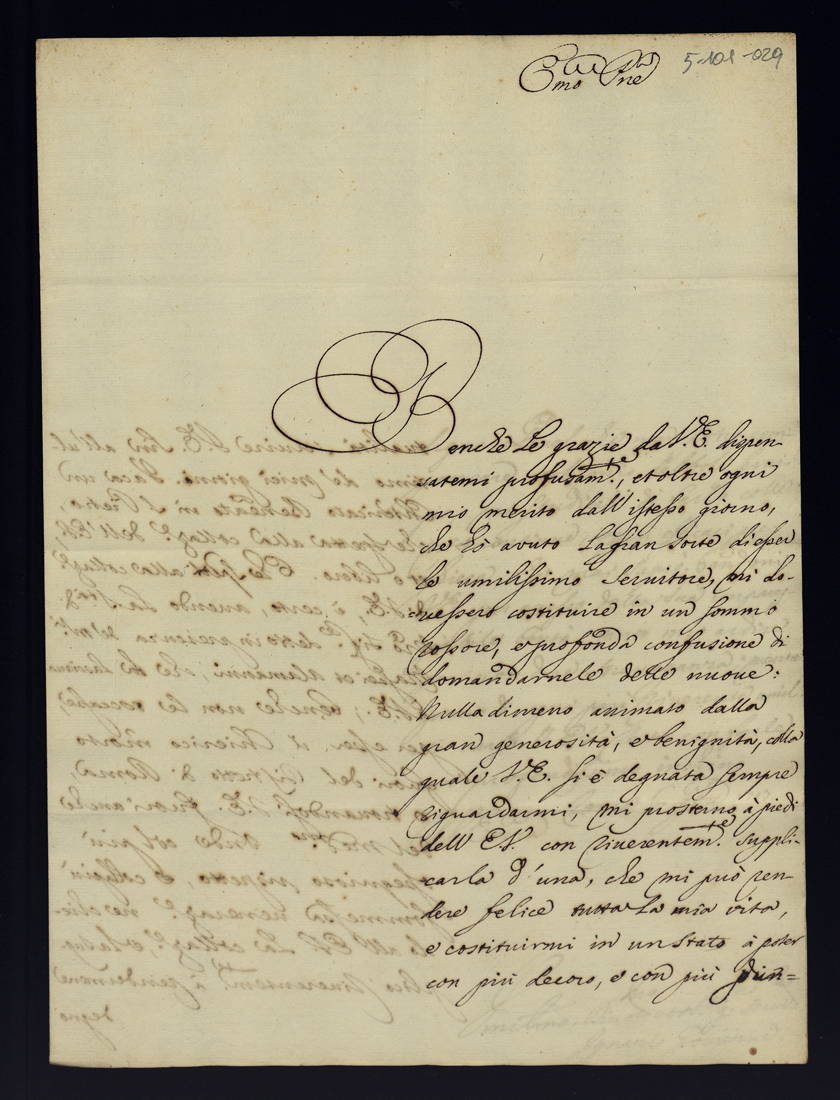 Em̃o Pñe
5-101-029
Benche Le grazie da V.E. dispen-
satemi profusam.te, et oltre ogni
mio merito dall'istesso giorno,
che hò avuto La gran sorte di esser
le umilissimo Servitore, mi do-
vessero costituire in un sommo
rossore, e profonda confusione di
domandarnele delle nuove:
Nulladimeno animato dalla
gran generosità, e benignità, colla
quale V.E. si è degnata sempre
riguardarmi, mi prosterno à piedi
dell'E.V. con riverentem.te suppli-
carla d'una, che mi può ren-
dere felice tutta La mia vita,
e costituirmi in un stato à poter
con più decoro, e con più